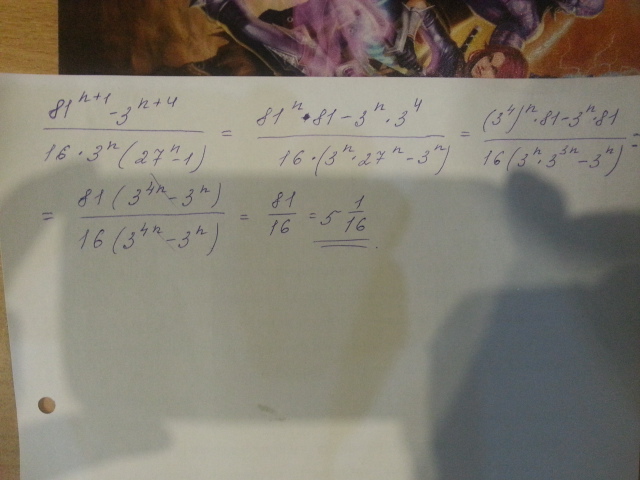 (81^{n+1} - 3^{n+4}) / (16 · 3^n (27^n - 1)) = (81^n · 81 - 3^n · 3^4) / (16 · (3^n · 27^n - 3^n)) = ((3^4)^n · 81 - 3^n · 81) / (16 (3^n · 3^{3n} - 3^n)) =
= (81 (3^{4n} - 3^n)) / (16 (3^{4n} - 3^n)) = 81/16 = 5 1/16.